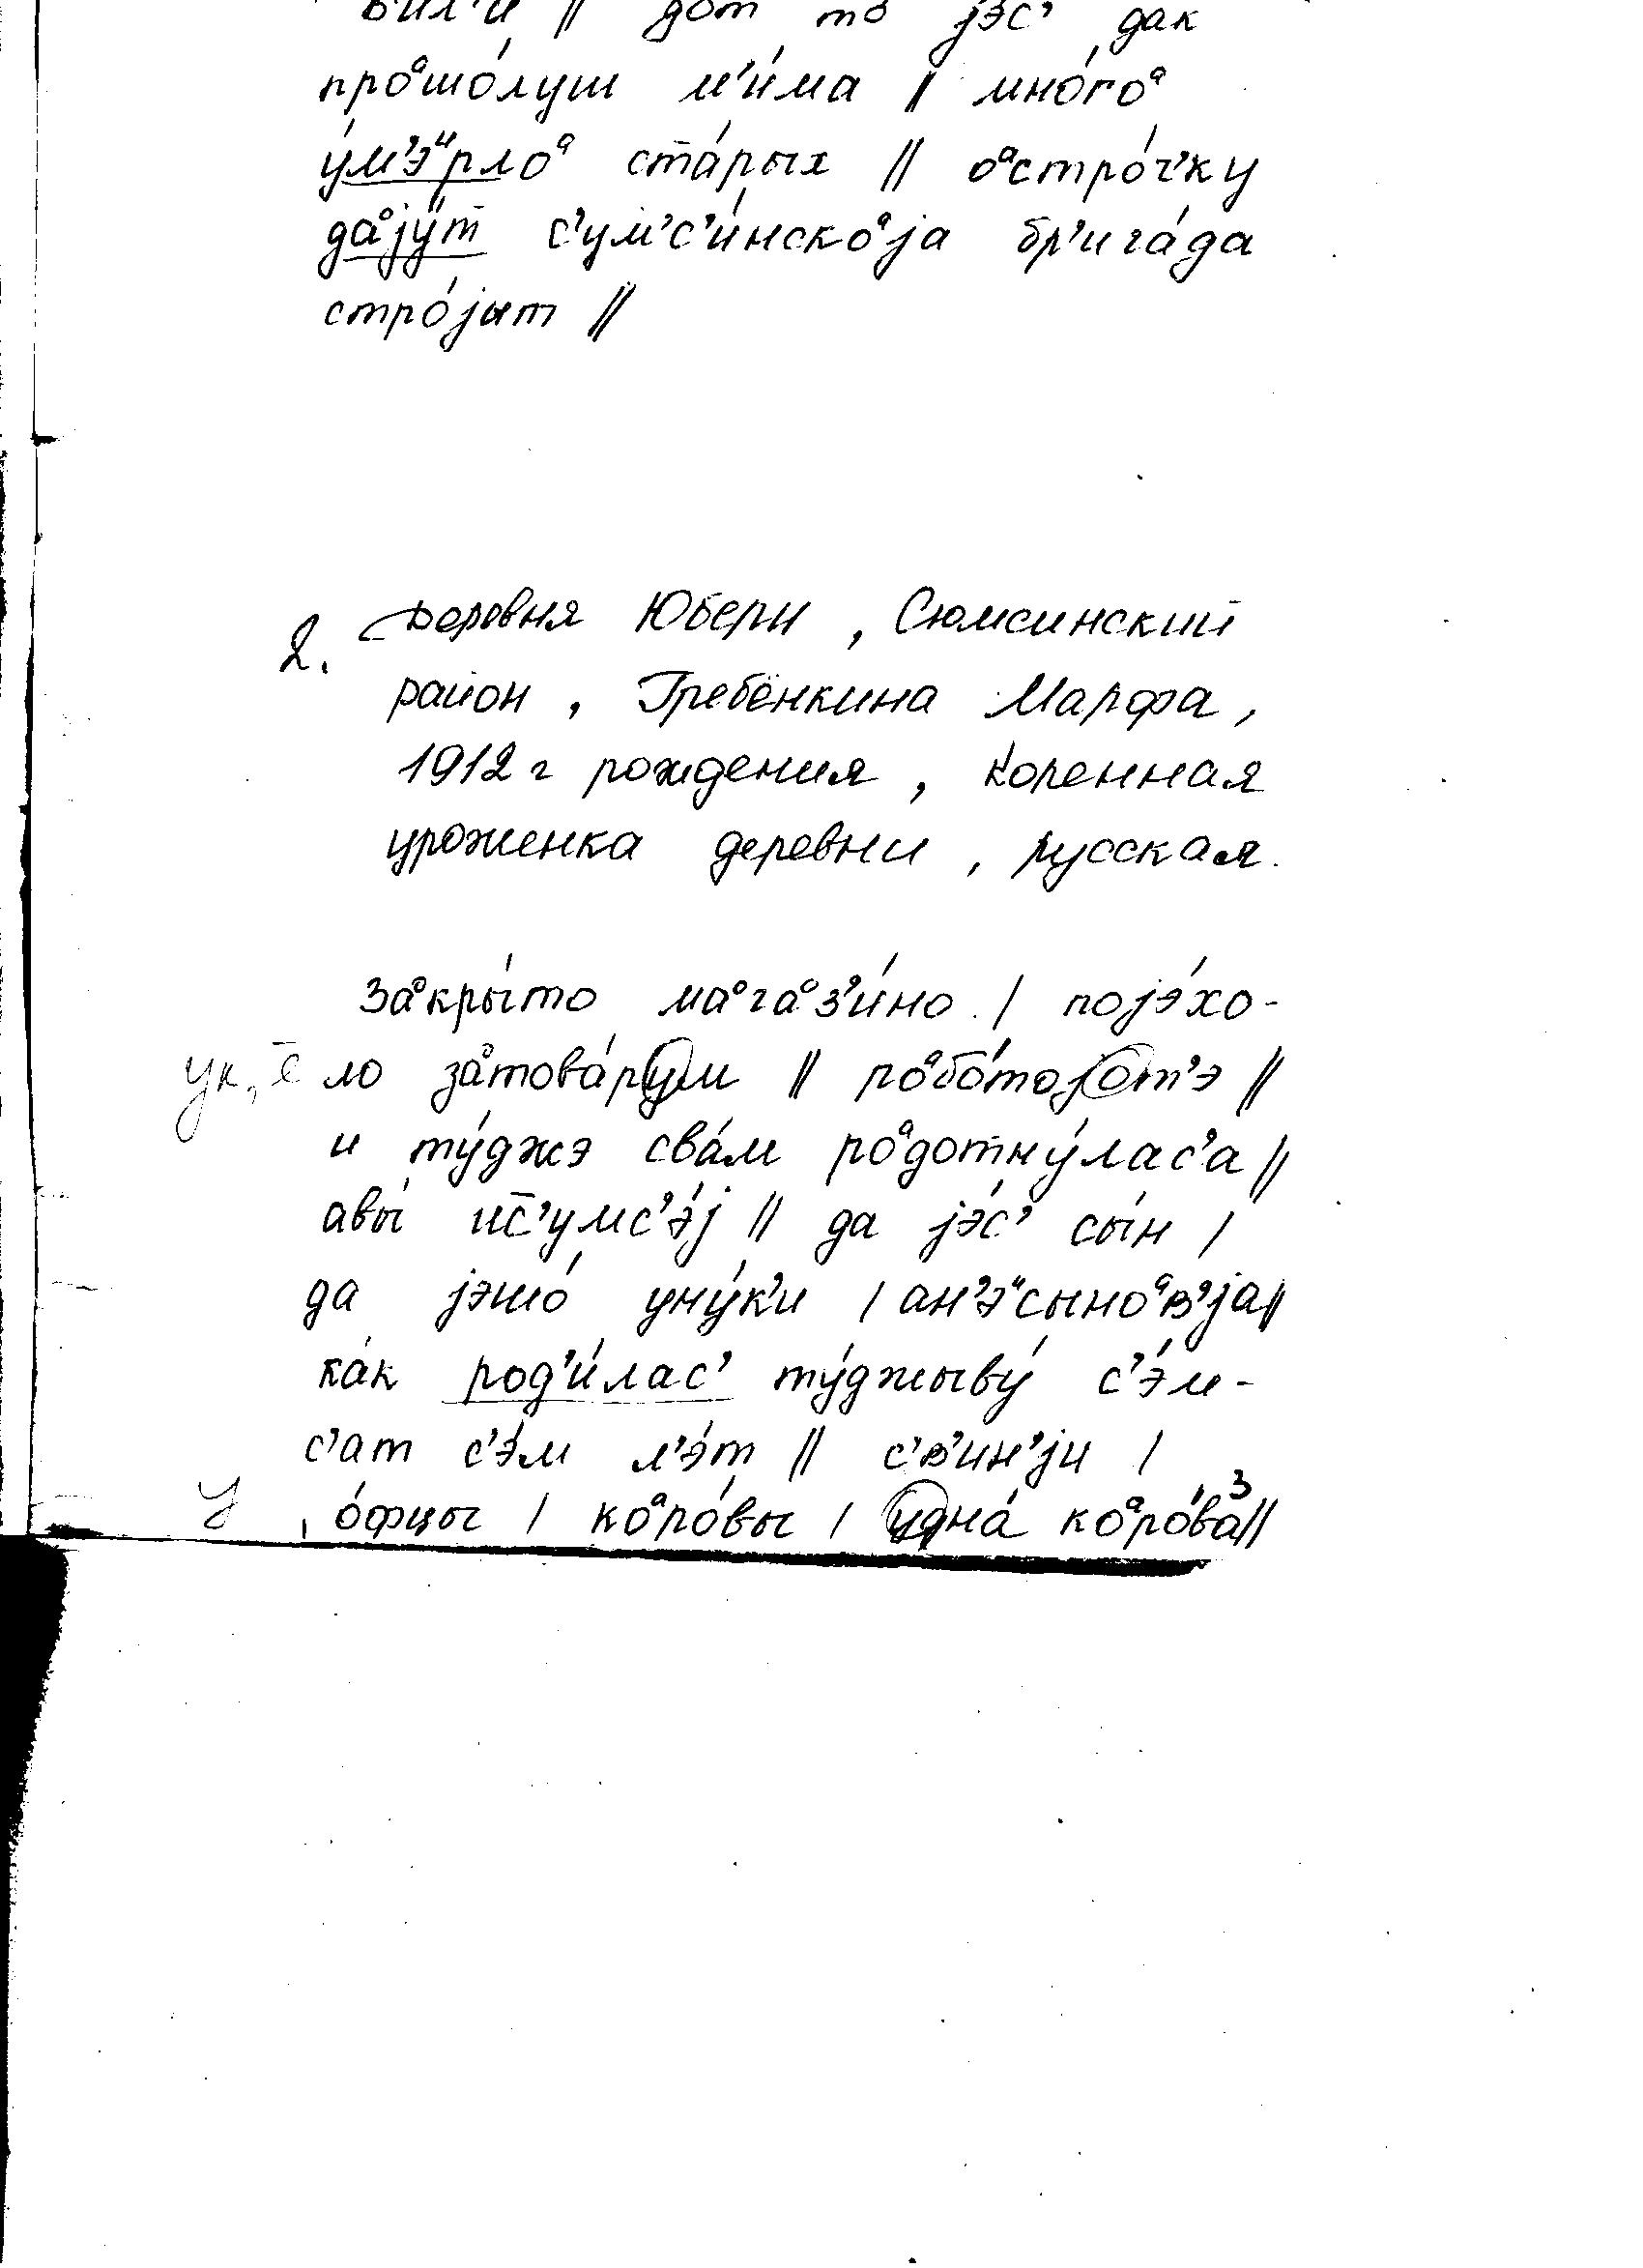 вил'и || дот то јэс' дак
проᵃшо́луш м'и́ма || мно́гоᵃ
у́м'эᶦрлоᵃ ста́рых || оᵃстро́ч'ку
даᵒју́т с'ум'с'и́нскоᵃја бр'ига́да
стро́јат ||
2. Деревня Юбери, Сюмсинский
район, Гребёнкина Марфа,
1912 г рождения, коренная
уроженка деревни, русская.
заᵒкры́то маᵒгаᵒз'и́но | појэ́хо-
ло заᵒтова́рум || роᵃбо́тојот'э ||
и ту́джэ сва́м роᵃдотну́лас'а ||
авы́ ис̄'умс'э́ј || да јэ́с' сы́н |
да јэшо́ уну́к'и | ан'эᶦсыноᵃв'ја ||
ка́к род'и́лас' ту́джыву́ с'э́м-
с'ат с'э́м л'э́т || с'в'ин'ји |
о́фцы | коᵃро́вы | удна́ коᵃро́ва³ ||
у